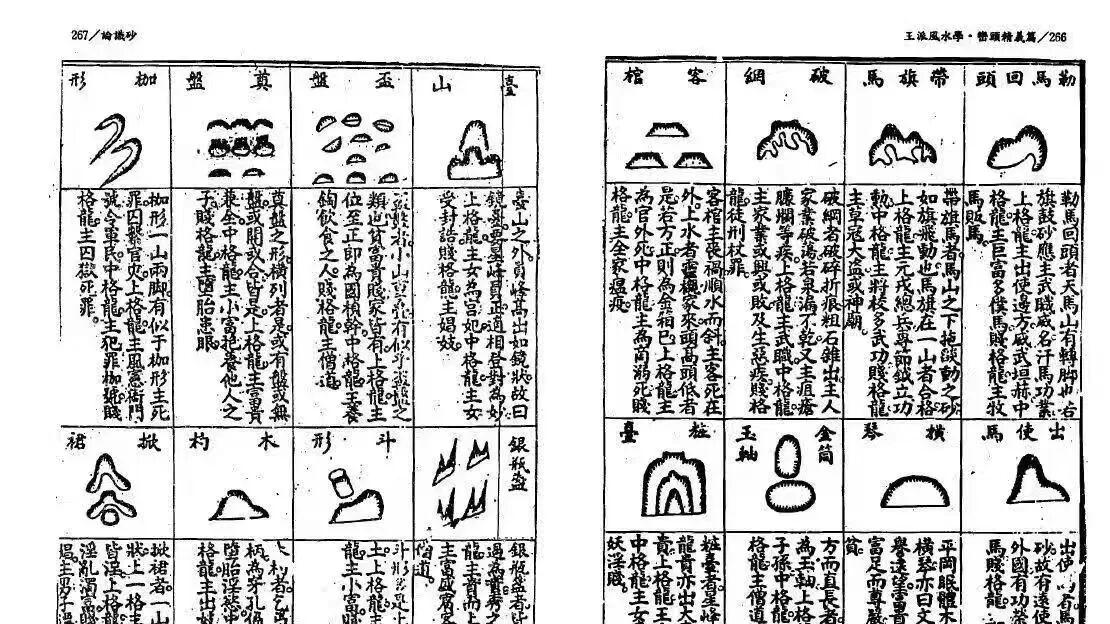 王派風水學·巒頭精義篇／266
勒馬回頭
勒馬回頭者天馬山有轉脚也右
旗鼓砂應主武職威名汗馬功業
上格龍主出使邊方威武垣赫中
格龍主巨富多僕馬賤格龍主牧
馬販馬
帶旗馬
帶旗馬者馬山之下拖燄動之砂
如旗飛動也馬旗在一山者合格
上格龍主元戎總兵專節鉞立功
動中格龍主將校多武功賤格龍
主草寇大盜或神廟
破網
破網者破碎折痕粗石錐出主人
家業破蕩若泉漏不乾又主疽瘡
臁爛等疾上格龍主武職中格龍
主家業或興或敗及生惡疾賤格
龍徒刑杖罪
客棺
客棺主喪禍順水而斜主客死在
外上水者家來頭高頭低者
是若方正則為金箱巳上格龍主
為官外死中格龍主為商溺死賤
格龍主全家瘟疫
出使馬
馬賤格龍
橫琴
平岡眠體木
橫琴亦曰文
譽遠望當貴
富足而尊嚴
貧
金筒玉軸
方而直長者
為玉軸上格
子孫中格龍
格龍主僧道
粧臺
粧臺者星峰
龍貴亦出大
貴上格龍王
中格龍主女
妖淫賤
267／論議砂
臺山
臺山之外員峰高出如鏡狀故曰
鏡臺要星峰員正適相登對為妙
上格龍主女為宮妃中格龍主女
受封誥賤格龍主娼妓
盃盤
類也貧富貴賤家皆有上格龍主
位至正卿為國楨幹中格龍主養
飼飲食之人賤格龍主僧道
奠盤
奠盤之形橫列者是或有盤或無
盤或開或合皆是上格龍主富貴
兼全中格龍主小富抱養他人之
子賤格龍主墮胎患眼
枷形
枷形一山兩脚有似于枷形主死
罪囚繫官災上格龍主風憲衙門
號令軍民中格龍主犯罪枷號賤
格龍主囚獄死罪
銀瓶盞
銀瓶盞者
斗形
斗形
土上格龍
龍主小富
木杓
柄為穿扎
墮胎淫慾中
格龍主出
掀裙
掀裙者一山
狀上一格
皆淫上格龍
淫亂濁富